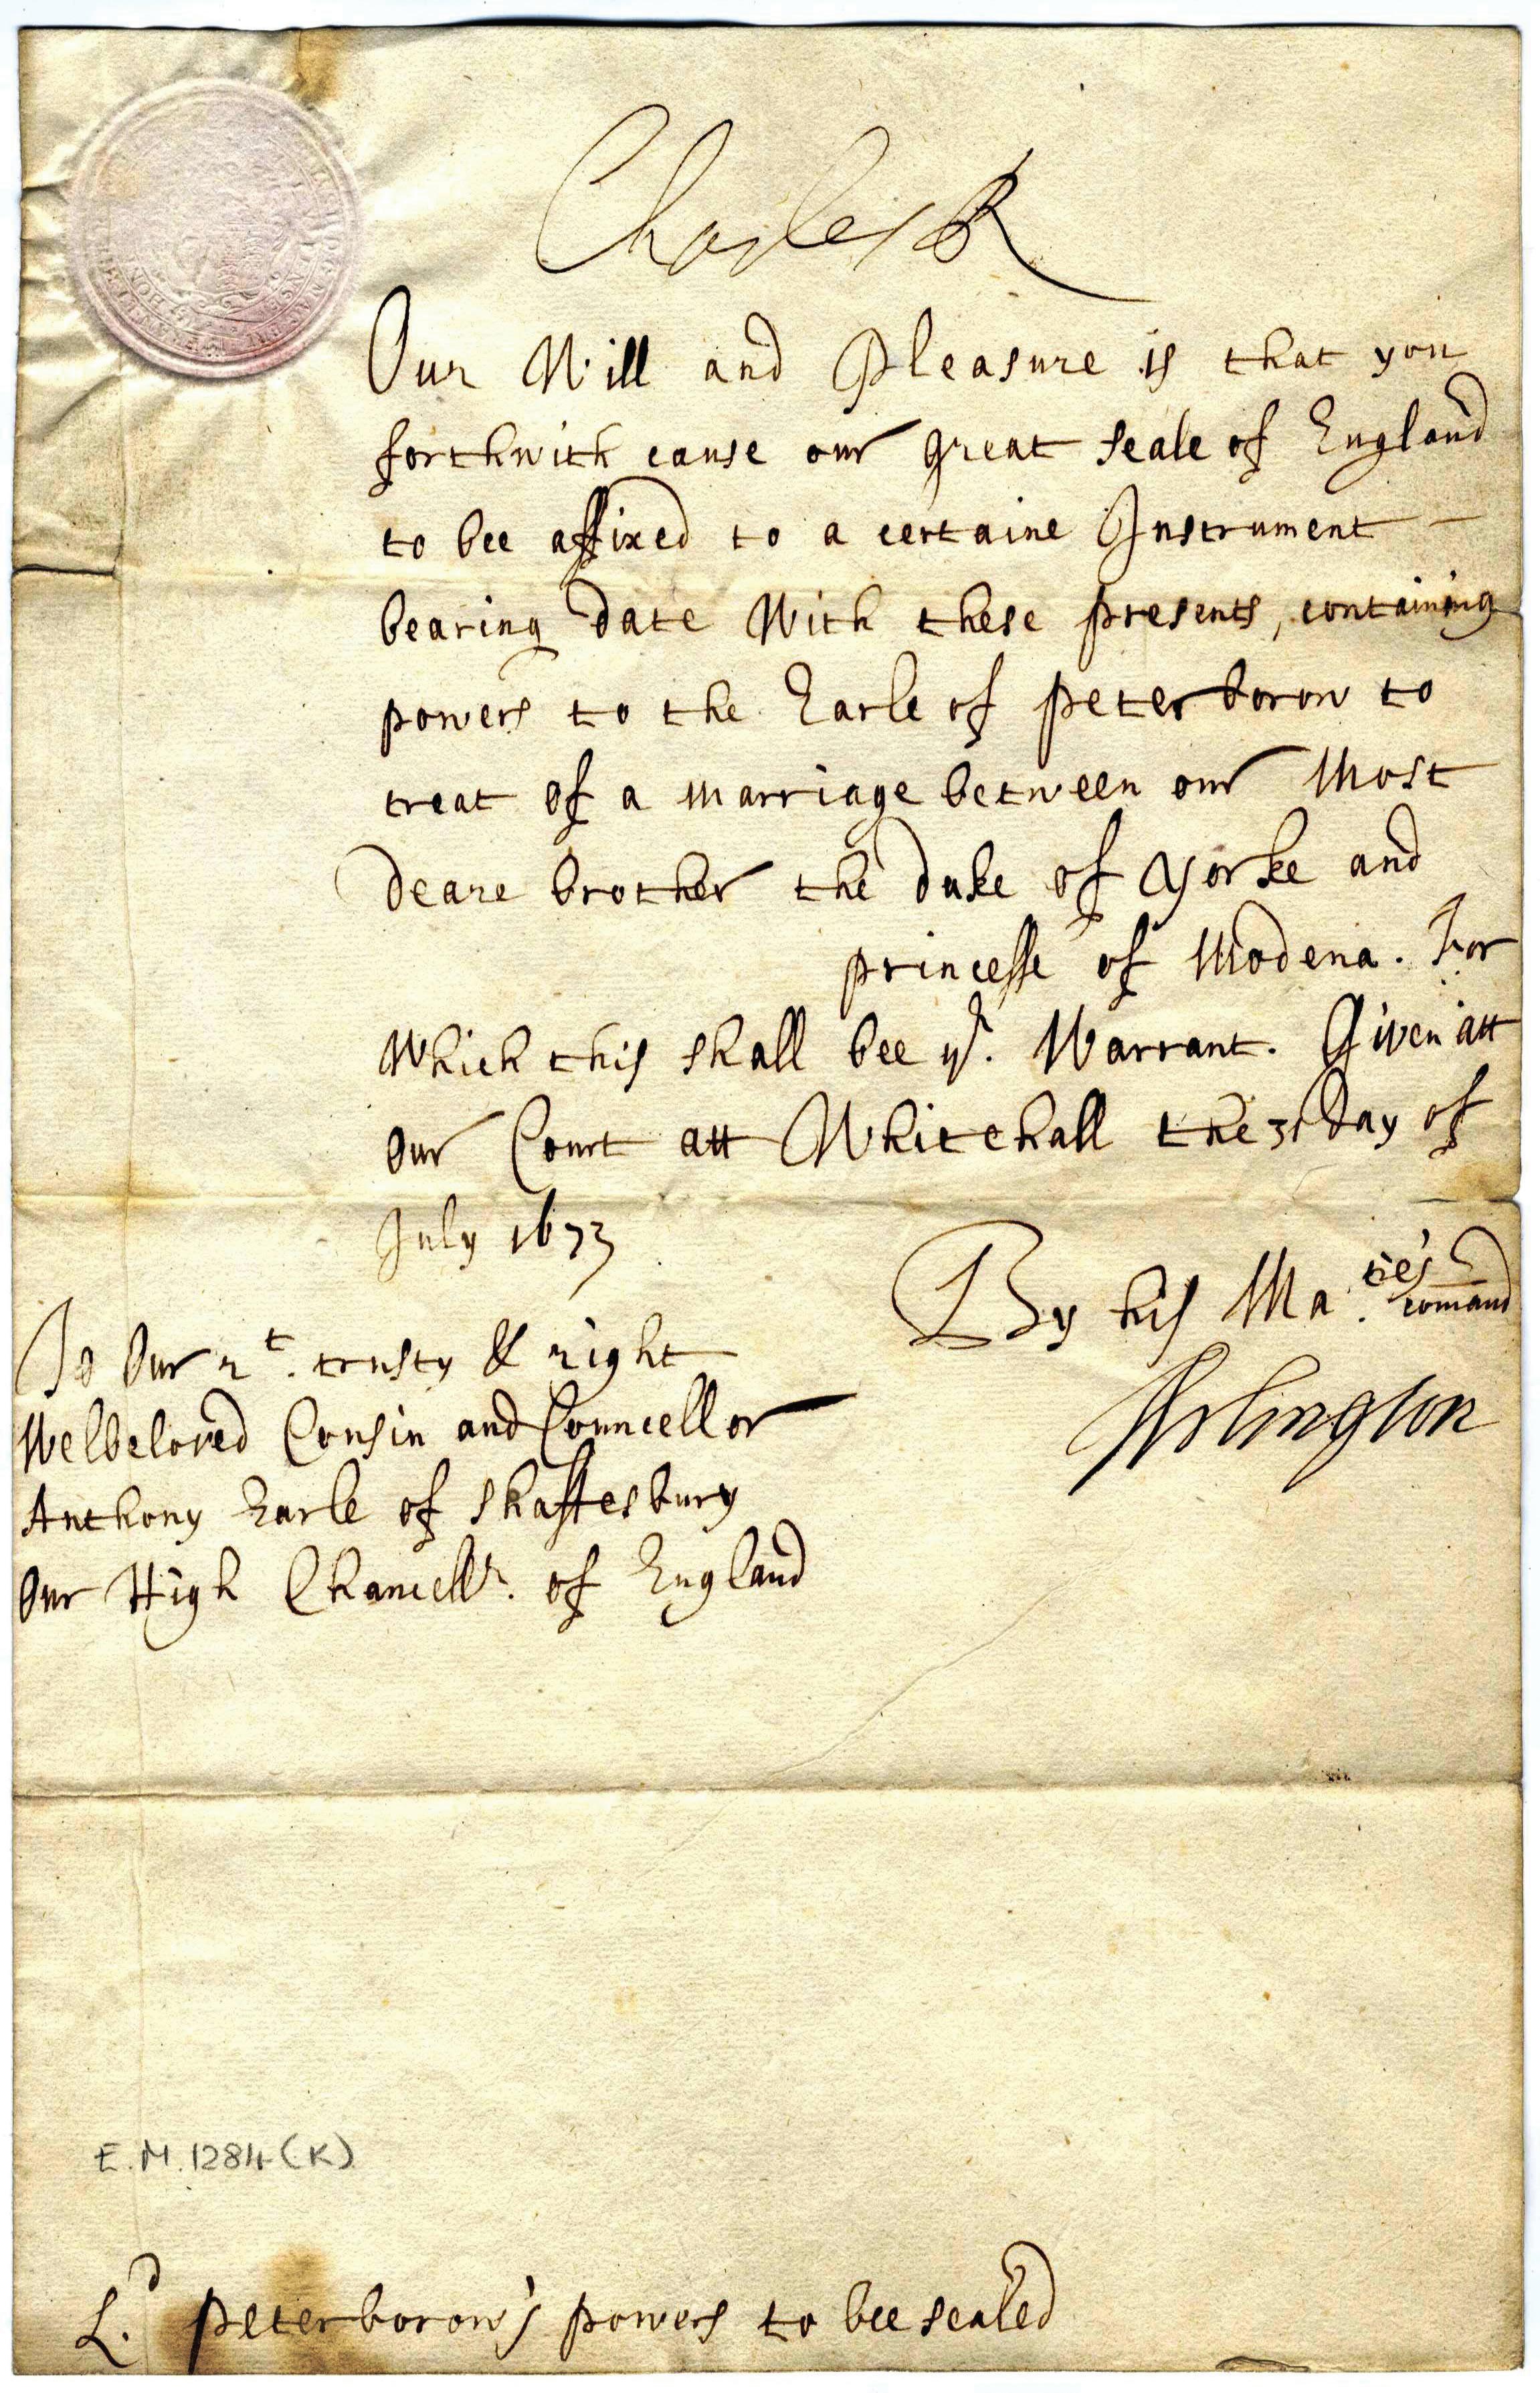 Charles R
Our Will and Pleasure is that you
forthwith cause our great seale of England
to bee affixed to a certaine Instrument
bearing date With these presents, containing
powers to the Earle of Peterborow to
treat of a marriage between our Most
deare brother the duke of Yorke and
princesse of Modena. For
Which this shall bee yr. Warrant. Given att
Our Court att Whitehall the 31 day of
July 1673
By his Ma.ties comand
Arlington
To Our rt. trusty & right
Welbeloved Cousin and Councellor
Anthony Earle of Shaftesbury
Our High Chancellr. of England
E.M.1284(K)
Ld. Peterborow's powers to bee sealed